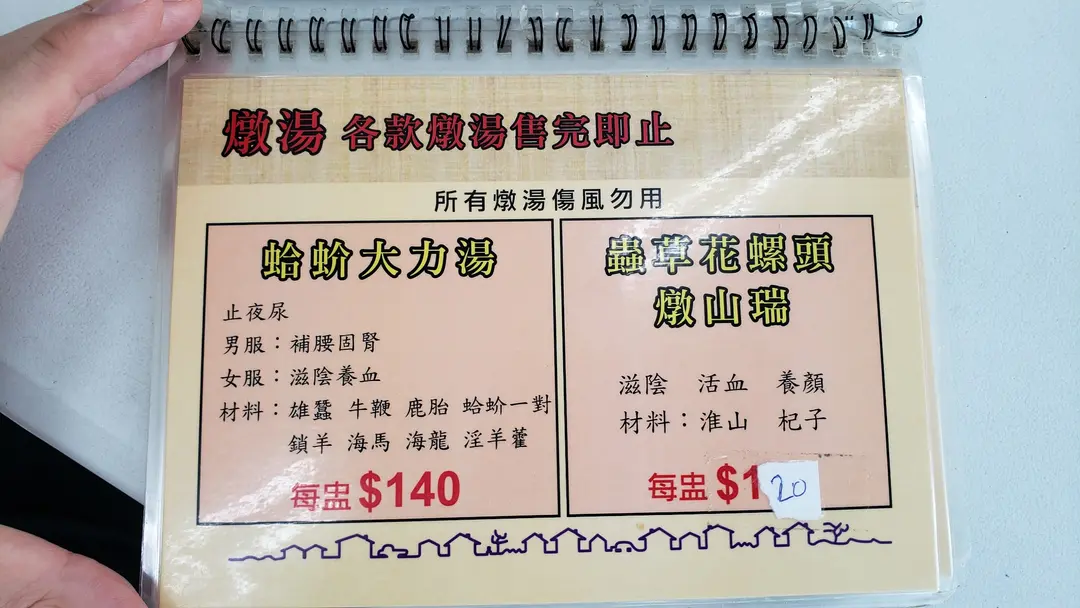 燉湯 各款燉湯售完即止
所有燉湯傷風勿用
蛤蚧大力湯
止夜尿
男服：補腰固腎
女服：滋陰養血
材料：雄蠶 牛鞭 鹿胎 蛤蚧一對
鎖羊 海馬 海龍 淫羊藿
每盅 $140
蟲草花螺頭
燉山瑞
滋陰 活血 養顏
材料：淮山 杞子
每盅 $120